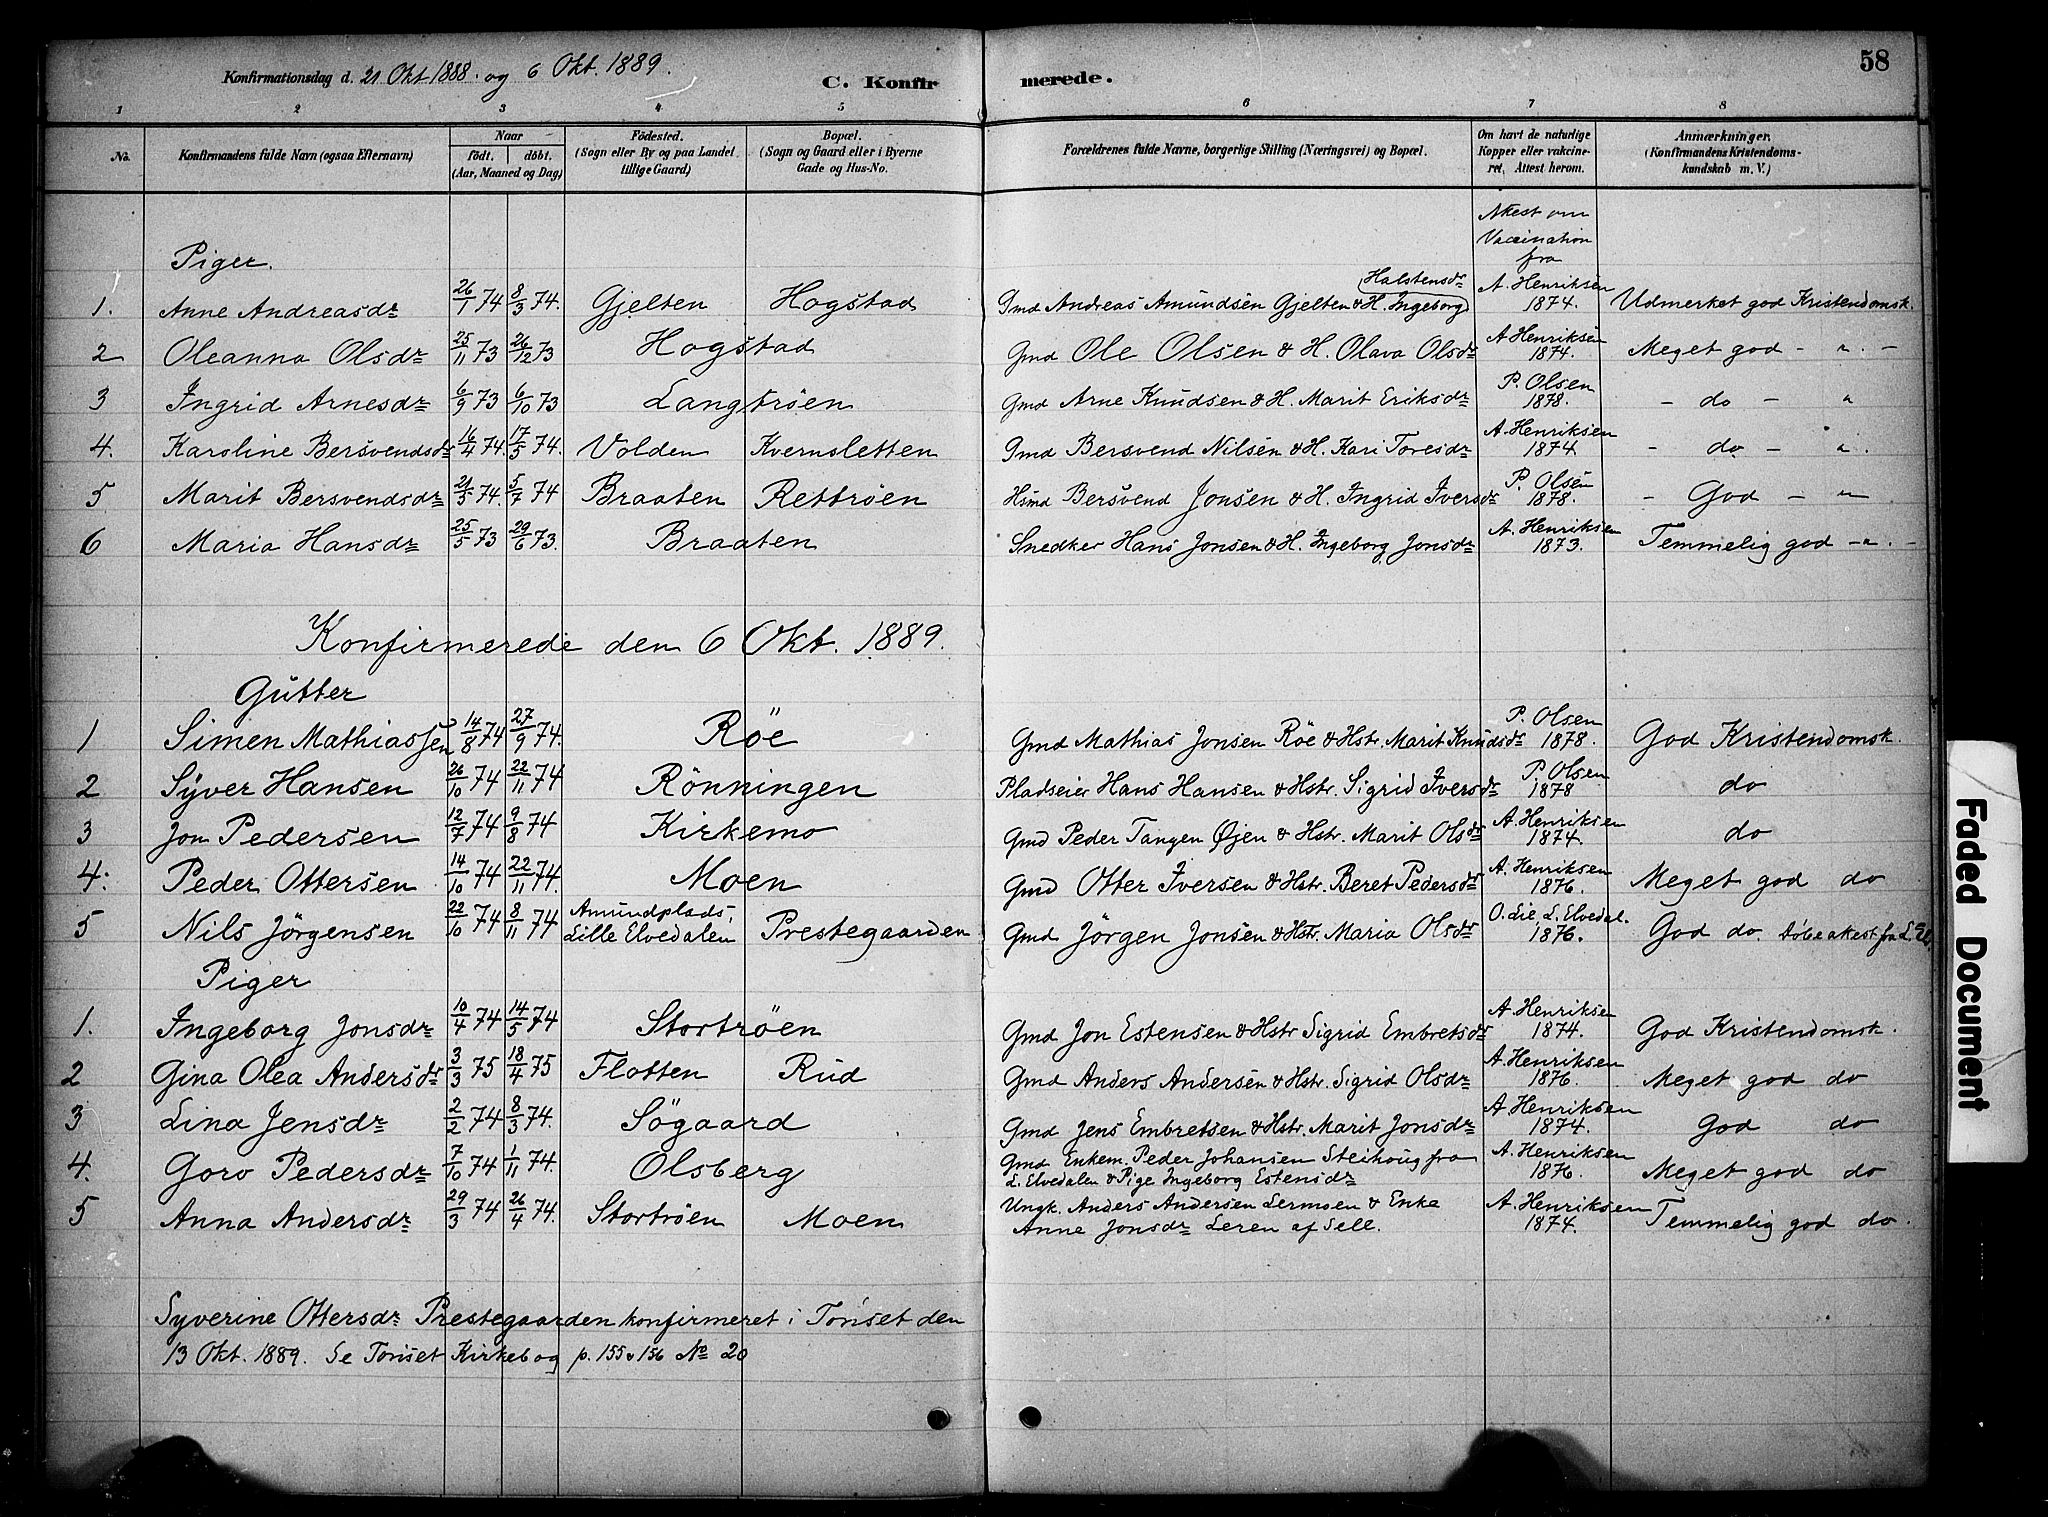 58
Konfirmationsdag d. 21 Okt 1888. og 6 Okt. 1889.
C. Konfirmerede.
1 2 3 4 5 6 7 8
No. Konfirmandens fulde Navn (ogsaa Efternavn) Naar födt. döbt. (Aar, Maaned og Dag) Födested. (Sogn eller By og paa Landet tillige Gaard) Bopæl. (Sogn og Gaard eller i Byerne Gade og Hus-No. Forældrenes fulde Navne, borgerlige Stilling (Næringsvei) og Bopæl. Om havt de naturlige Kopper eller vakcineret, Attest herom. Anmærkninger. (Konfirmandens Kristendomskundskab m. V.)
Attest om
Vaccination
fra
Piger.
1. Anne Andreasdr 26/1 74 8/3 74. Gjelten Hogstad Gmd Andreas Amundsen Gjelten & H. Ingeborg Halstensdr A. Henriksen 1874. Udmerket god Kristendomsk.
2 Oleanna Olsdr 25/11 73 26/12 73 Hogstad Gmd Ole Olsen & H. Olava Olsdr A Henriksen 1874. Meget god - " -
3 Ingrid Arnesdr 6/9 73 6/10 73 Langtröen Gmd Arne Knudsen & H. Marit Eriksdr P. Olsen 1878. - do - "
4. Karoline Bersvendsdr 16/4 74. 17/5 74. Volden Kvernsletten Gmd Bersvend Nilsen & H. Kari Toresdr A. Henriksen 1874 - do - " .
5 Marit Bersvendsdr 21/5 74. 5/7 74 Braaten Rettröen Hsmd Bersvend Jonsen & H. Ingrid Iversdr P. Olsen 1878. - God - "
6 Maria Hansdr 25/5 73 29/6 73. Braaten Snedker Hans Jonsen & H. Ingeborg Jonsdr A. Henriksen 1873. Temmelig god - " . -
Konfirmerede den 6 Okt. 1889.
Gutter
1 Simen Mathiassen 14/8 74 27/9 74. Röe Gmd Mathias Jonsen Röe & Hstr. Marit Knudsdr P. Olsen 1878. God Kristendomsk.
2 Syver Hansen 26/10 74 22/11 74 Rönningen Pladseier Hans Hansen & Hstr. Sigrid Iversdr P. Olsen 1878 do
3 Jon Pedersen 12/7 74 9/8 74 Kirkemo Gmd Peder Tangen Øjen & Hstr. Marit Olsdr A. Henriksen 1874. do
4. Peder Ottersen 14/10 74 22/11 74. Moen Gmd Otter Iversen & Hstr. Beret Pedersdr A. Henriksen 1876. Meget god do
5 Nils Jörgensen 22/10 74 8/11 74 Amundplads, Lille Elvedalen Prestegaarden Gmd Jörgen Jonsen & Hstr. Maria Olsdr O. Lie L. Elvedal. 1876. God do. Döbeattest fra L. El.
Piger
1. Ingeborg Jonsdr 10/4 74 14/5 74 Stortröen Gmd Jon Estensen & Hstr Sigrid Embretsdr A Henriksen 1874. God Kristendomsk.
2 Gina Olea Andersdr 3/3 75 18/4 75 Flotten Rud Gmd Anders Andersen & Hstr. Sigrid Olsdr A. Henriksen 1876. Meget god do
3 Lina Jensdr 2/2 74 8/3 74. Sögaard Gmd Jens Embretsen & Hstr. Marit Jonsdr A. Henriksen 1874. God do
4. Goro Pedersdr 7/10 74 1/11 74. Olsberg Gmd Enkem. Peder Johansen Steihoug fra L. Elvedalen & Pige Ingeborg Estensdr A. Henriksen 1876. Meget god do
5 Anna Andersdr 29/3 74 26/4 74. Stortröen Moen Ungk. Anders Andersen Lermoen & Enke Anne Jonsdr Leren af Sell. A. Henriksen 1874. Temmelig god do.
Syverine Ottersdr Prestegaarden konfirmeret i Tönset den
13 Okt. 1889. Se Tönset Kirkebog p. 155 & 156 No 20
Faded Document